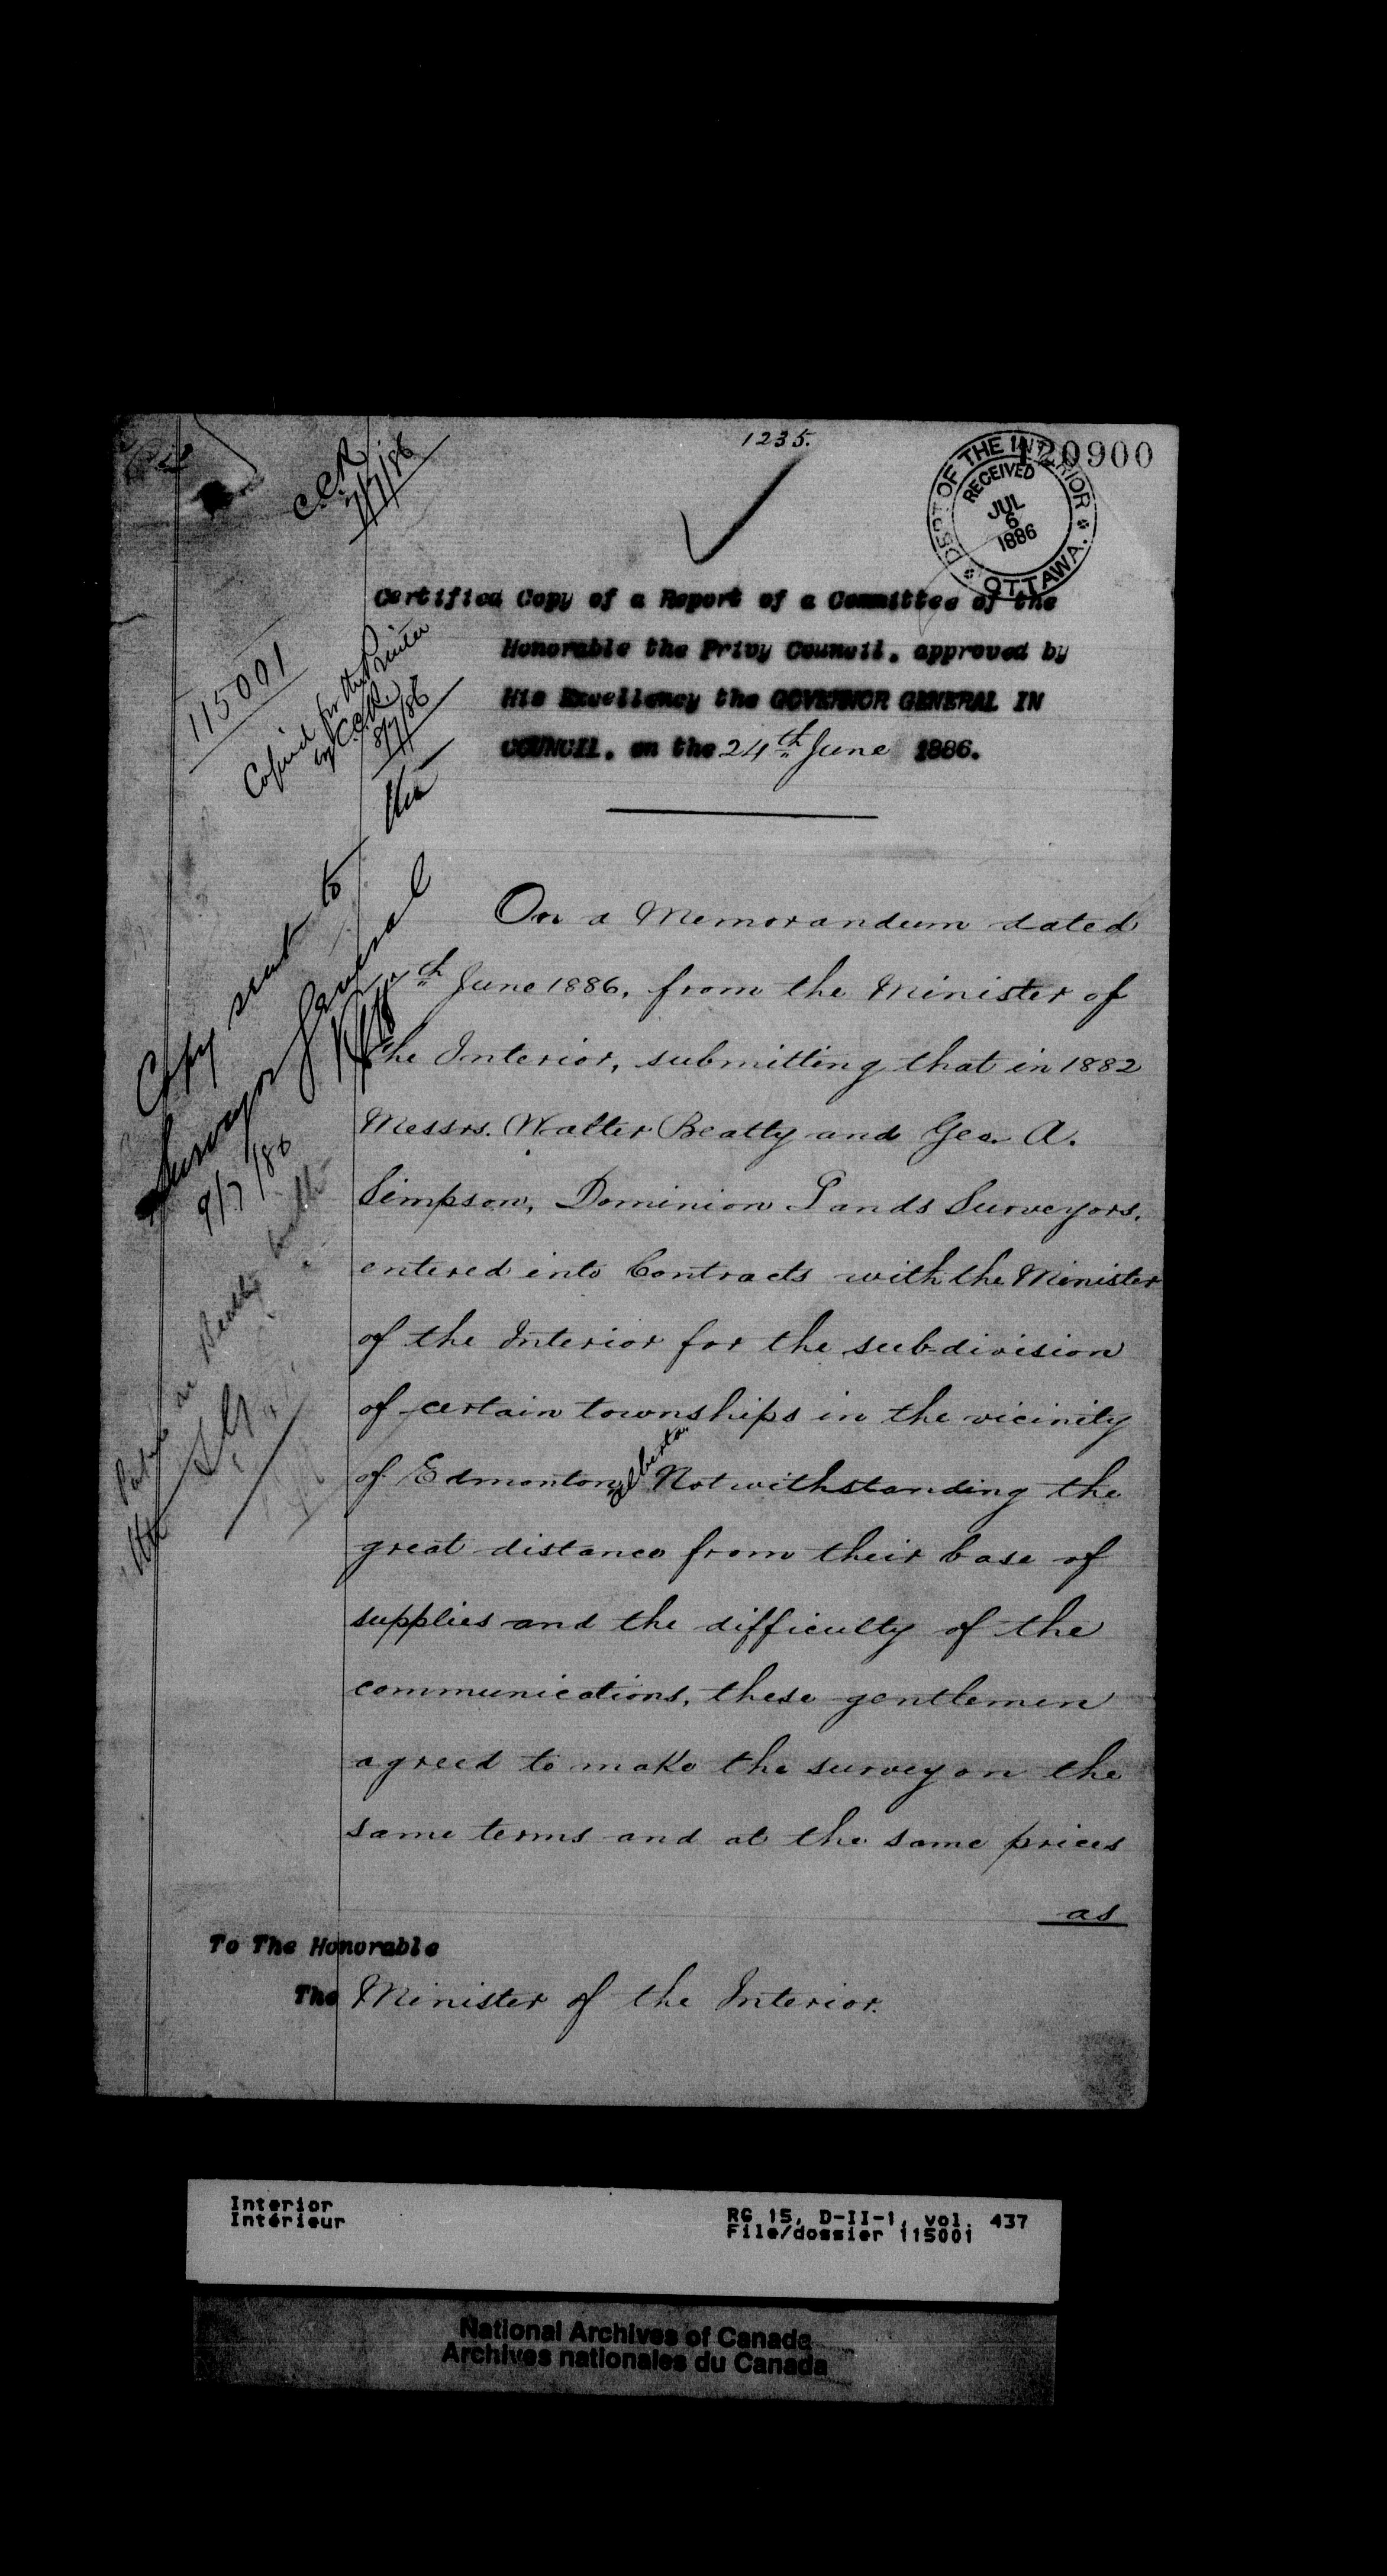 1235.
120900
DEPT OF THE INTERIOR
RECEIVED
JUL
6
1886
OTTAWA.
C.C.R.
7/7/86
Certified Copy of a Report of a Committee of the
Honorable the Privy Council, approved by
His Excellency the GOVERNOR GENERAL IN
COUNCIL, on the 24th June 1886.
115001
Copied for the Printer
by C.C.R.
8/7/86
Copy sent to the
Surveyor General
9/7/86
On a Memorandum dated
th June 1886, from the Minister of
the Interior, submitting that in 1882
Messrs. Walter Beatty and Geo. A.
Simpson, Dominion Lands Surveyors,
entered into Contracts with the Minister
of the Interior for the sub-division
of certain townships in the vicinity
of Edmonton, Alberta. Notwithstanding the
great distance from their base of
supplies and the difficulty of the
communications, these gentlemen
agreed to make the survey on the
same terms and at the same prices
as
To The Honorable
The Minister of the Interior.
Interior
Intérieur
RG 15, D-II-1, vol. 437
File/dossier 115001
National Archives of Canada
Archives nationales du Canada